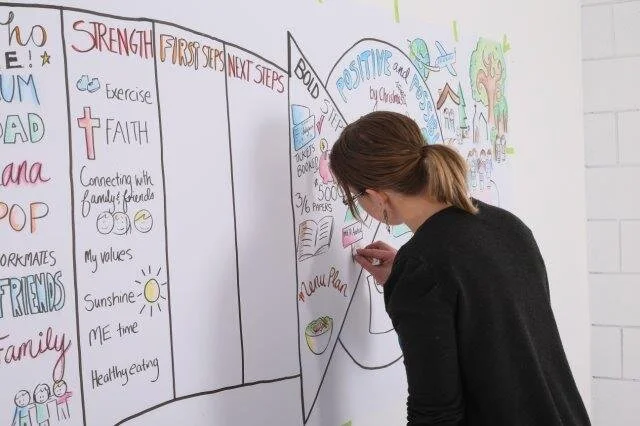 ho
E!
UM
DAD
ana
POP
ORKMATES
FRIENDS
Family
STRENGTH
Exercise
FAITH
Connecting with
family & friends
My values
Sunshine
ME time
Healthy eating
FIRST STEPS
NEXT STEPS
BOLD
TICKETS
BOOKED
3/6 PAPERS
Menu Plan
POSITIVE and POSS
by Christmas